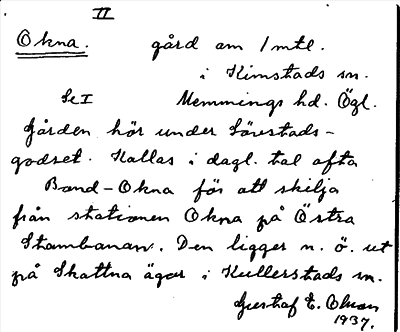 II
Okna. gård om 1 mtl.
i Kimstads sn.
Se I Memmings hd. Ögl.
Gården hör under Lövstads-
godset. Kallas i dagl. tal ofta
Band-Okna för att skilja
från stationen Okna på Östra
Stambanan. Den ligger n. ö. ut
på Skattna ägor i Kullerstads sn.
Gustaf E. Olson
1937.